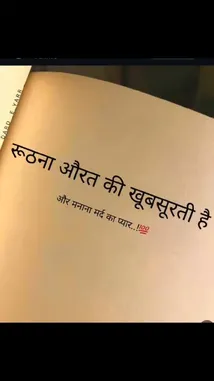 रूठना औरत की खूबसूरती है
और मनाना मर्द का प्यार..!💯